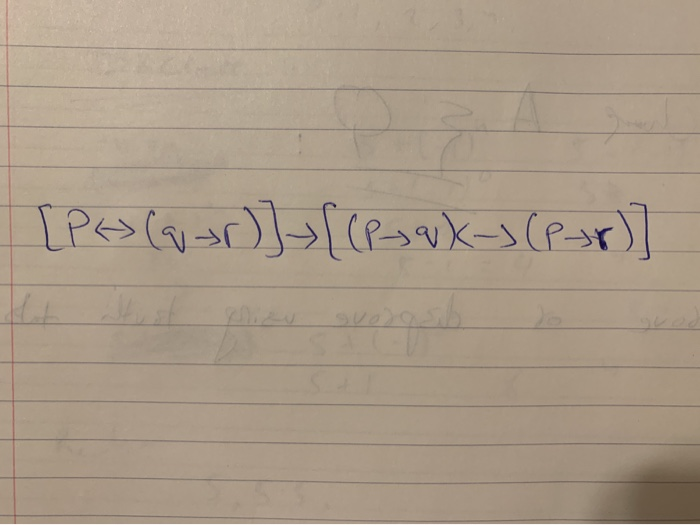 [P↔(q→r)]→[(P→q)↔(P→r)]